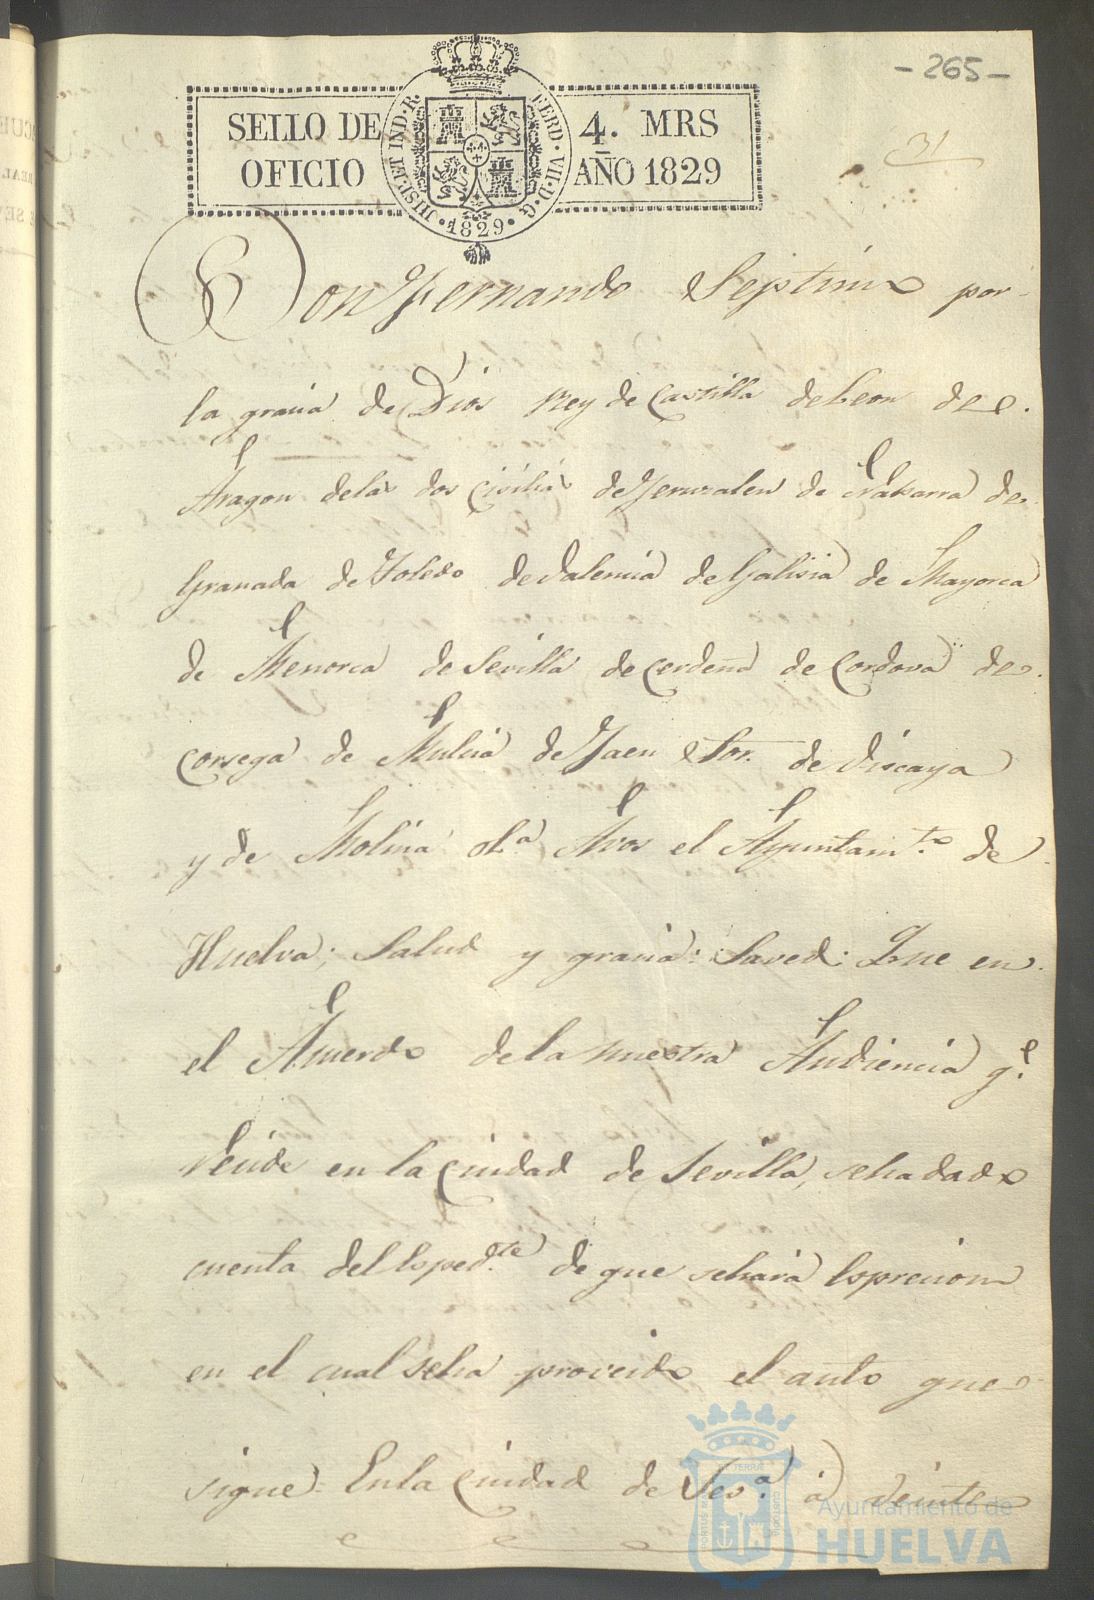 - 265 -
31
SELLO DE 4. MRS
OFICIO AÑO 1829
HISP. ET IND. R. FERD. VII. D. G. 1829
Don Fernando Septimo por
la gracia de Dios Rey de Castilla de Leon de
Aragon delas dos Cicilias de Jeruzalen de Nabarra de
Granada de Toledo de Valencia de Galisia de Mayorca
de Menorca de Sevilla de Cerdeña de Cordova de
Corsega de Mulcia de Jaen Sor. de Viscaya
y de Molina &.a A vos el Ayuntam.to de
Huelva; Salud y gracia: Saved: Que en
el Acuerdo dela nuestra Audiencia q.e
recide en la Ciudad de Sevilla, seha dado
cuenta del Esped.te de que sehará Esprecion
en el cual seha proveido el auto que
sigue = En la Ciudad de Sev.a á veinte
PORTUS MARIS ET TERRAE CUSTODIA
Ayuntamiento de
HUELVA